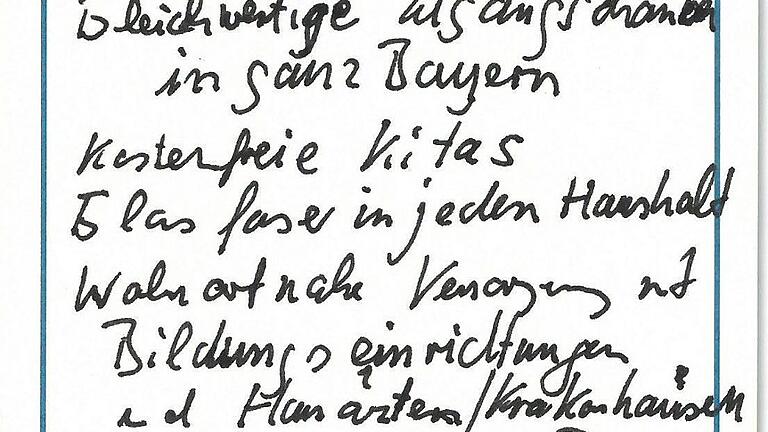 Gleichwertige Ausgangschancen
in ganz Bayern
Kostenfreie Kitas
Glasfaser in jeden Haushalt
Wohnortnahe Versorgung mit
Bildungseinrichtungen
und Hausärzten/Krankenhäusern